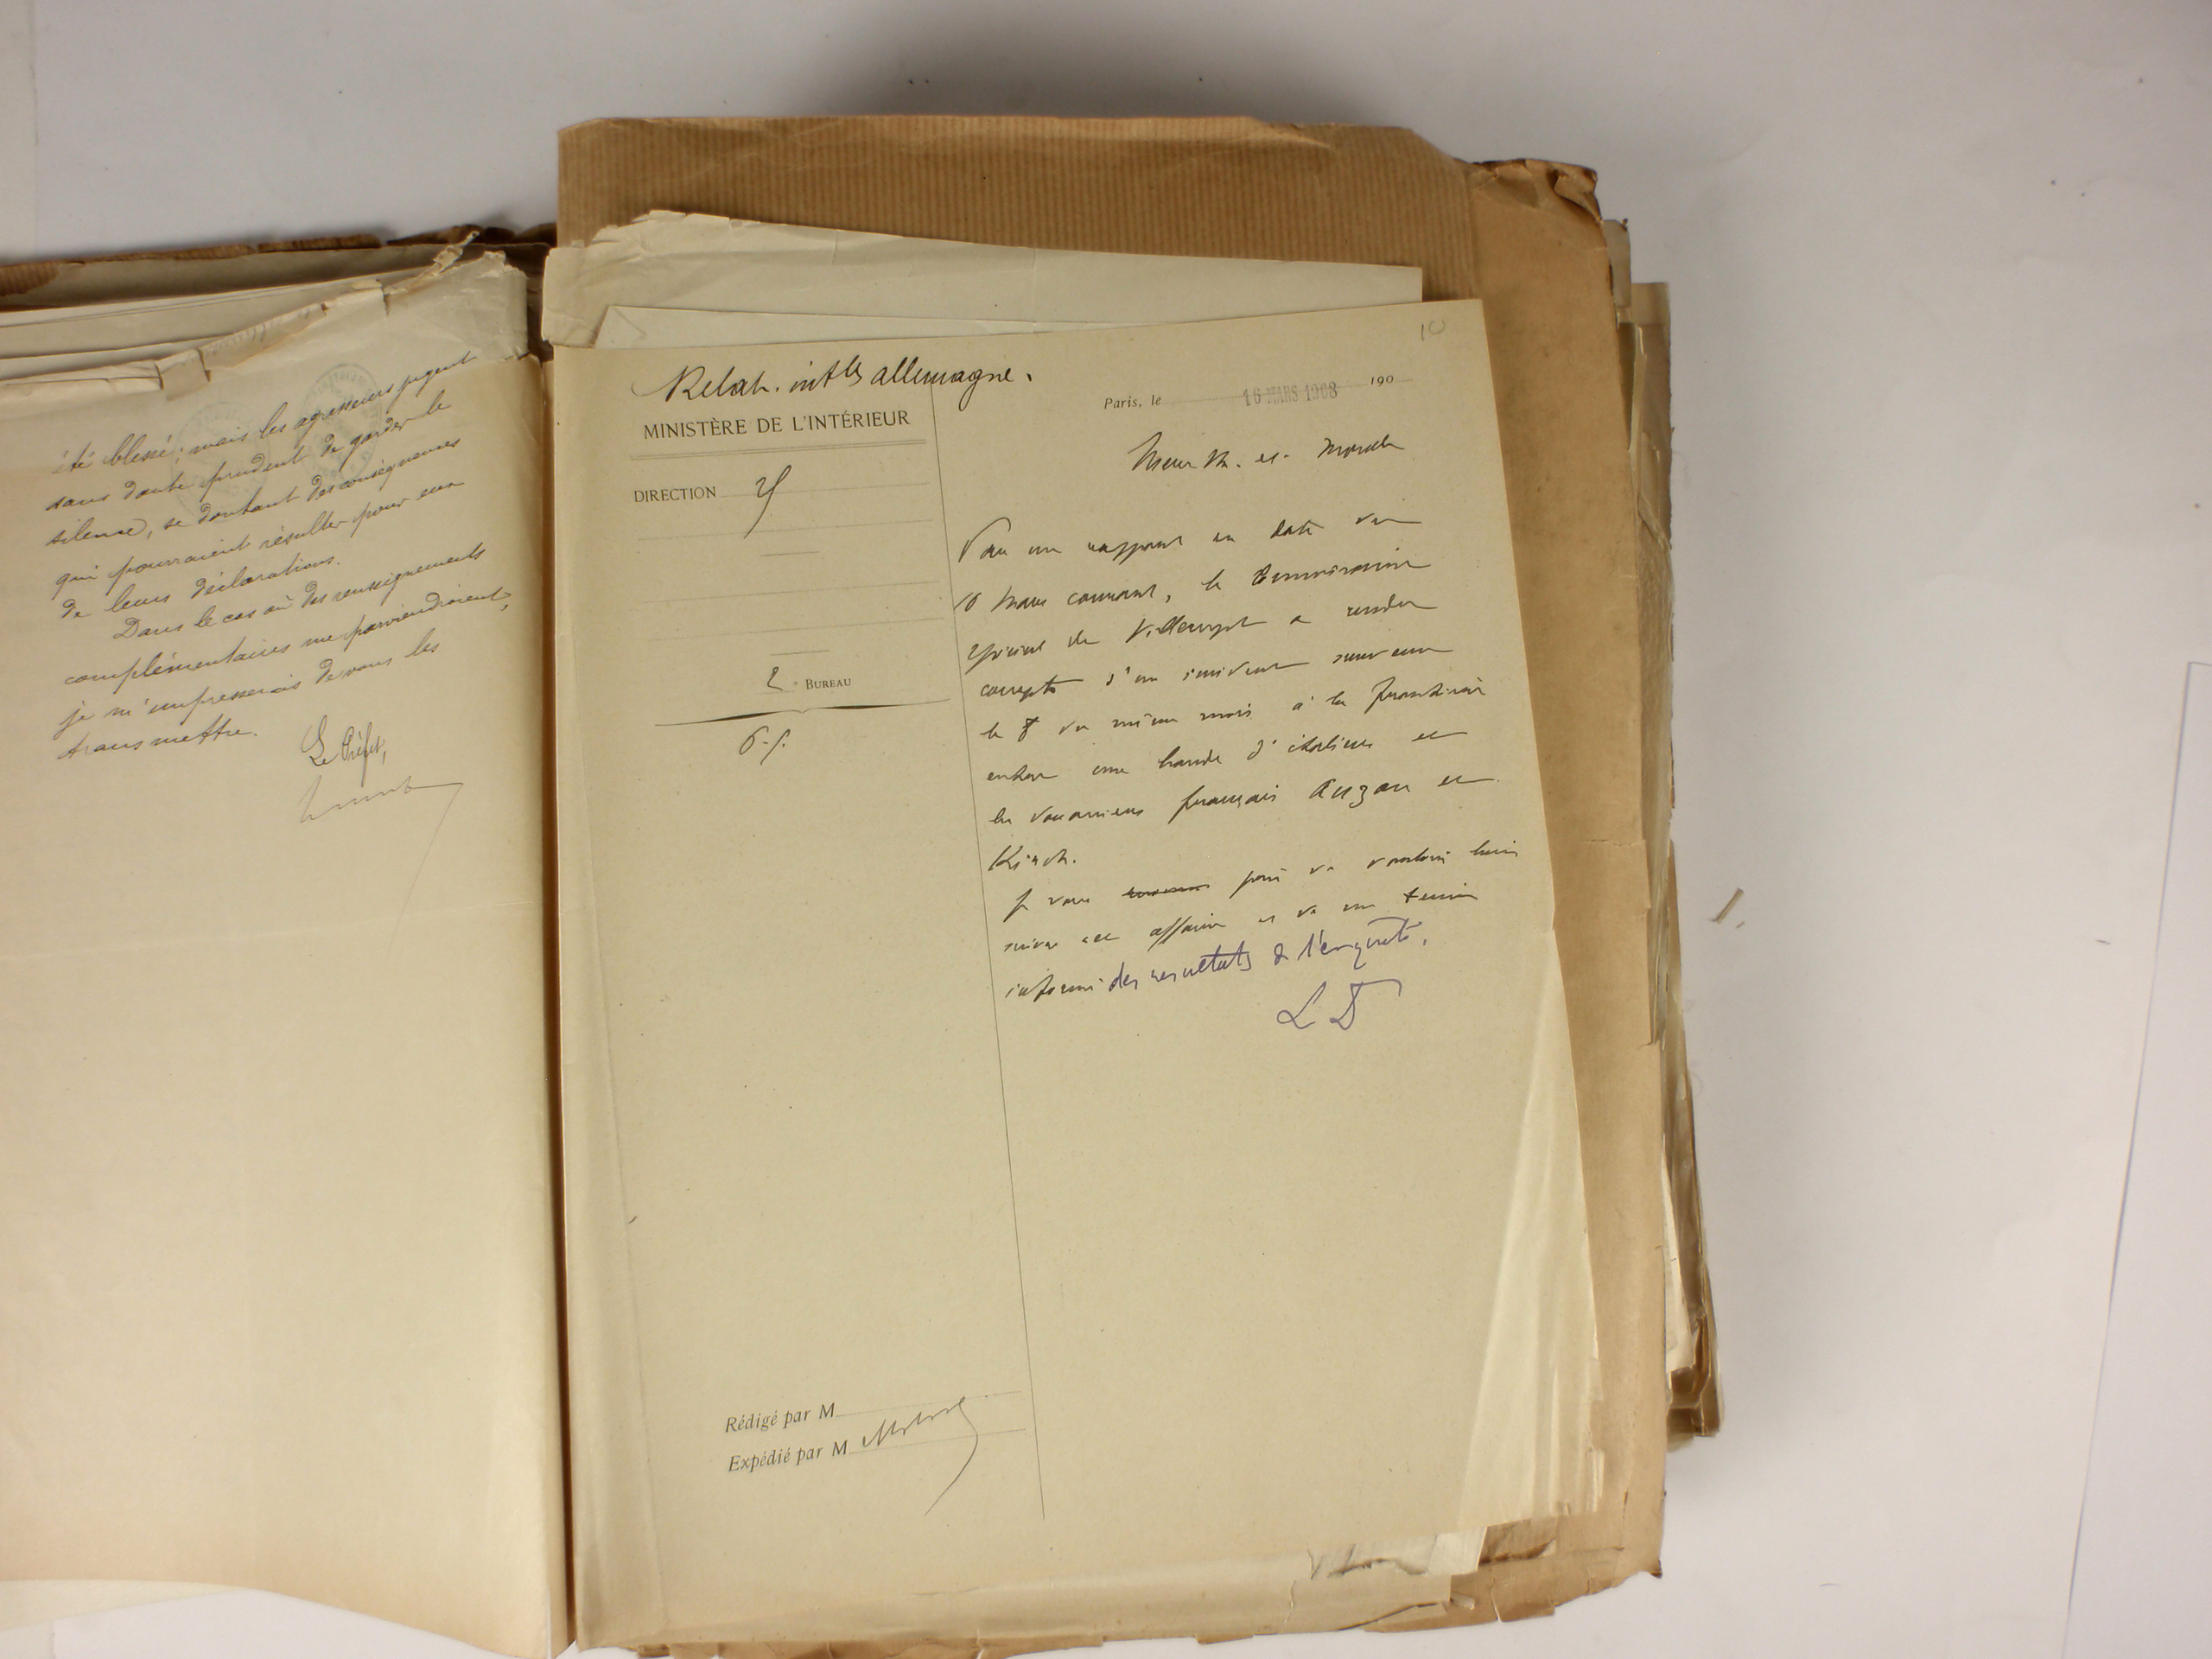 été blessé ; mais les agresseurs jugent
sans doute prudent de garder le
silence, se doutant des conséquences
qui pourraient résulter pour eux
de leurs déclarations.
Dans le cas où des renseignements
complémentaires me parviendraient,
je m'empresserais de vous les
transmettre.
Le Préfet,
10
Relat. intles allemagne.
MINISTÈRE DE L'INTÉRIEUR
DIRECTION
2e BUREAU
Paris, le 16 MARS 1908 190
Meurth. et Moselle
Par un rapport en date du
10 Mars courant, le Commissaire
spécial de Villerupt a rendu
compte d'un incident survenu
le 8 du même mois à la frontière
entre une bande d'italiens et
les douaniers français Auzan et
Kirch.
Je vous prie de vouloir bien
suivre cette affaire et de me tenir
informé des resultats de l'enquête.
LD
Rédigé par M
Expédié par M